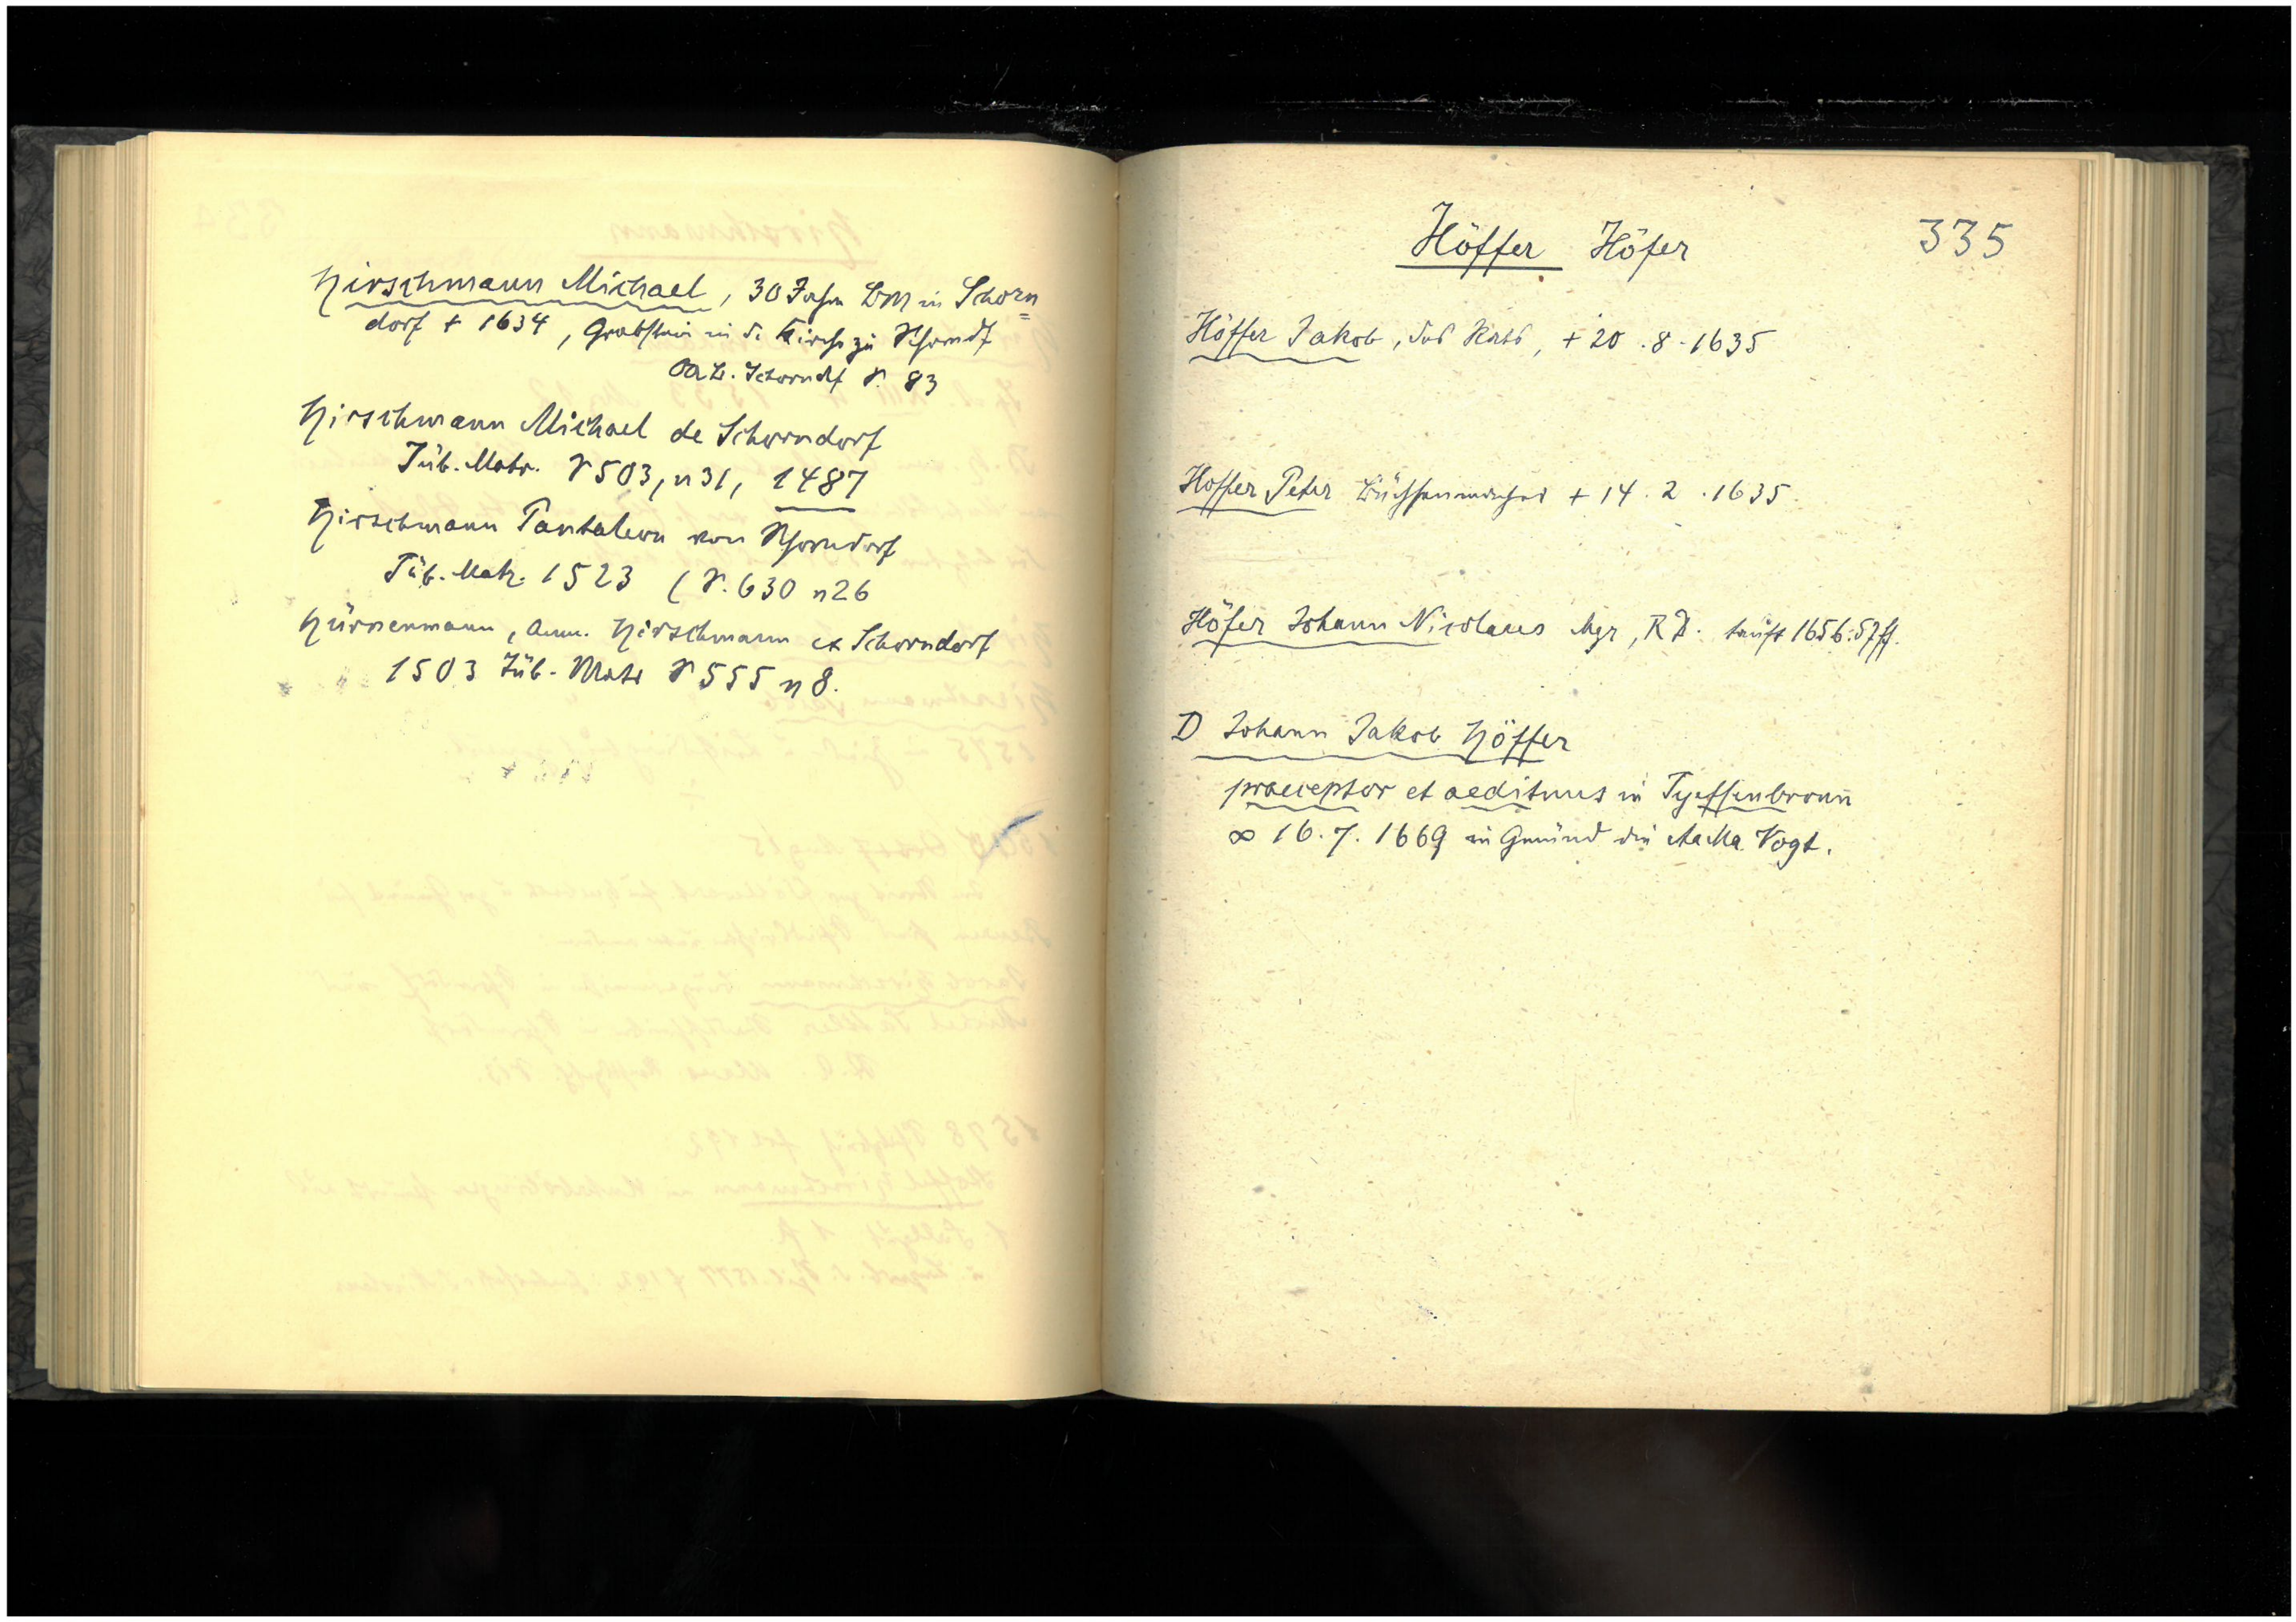 Hirschmann Michael, 30 Jahre BM in Schorn=
dorf + 1634, Grabstein in d. Kirche zu Schorndf
OAB. Schorndf S. 83
Hirschmann Michael de Schorndorf
Tüb. Matr. S 503, n 31, 1487
Hirschmann Pantaleon von Schorndorf
Tüb. Matr. 1523 (S. 630 n 26
Hürnenmann, Anm. Hirschmann ex Schorndorf
1503 Tüb. Matr S 555 n 8.
Höffer Höfer 335
Höffer Jakob, des Rats, + 20.8.1635
Hoffer Peter Büchsenmacher + 14.2.1635.
Höfer Johann Nicolaus Mgr, R D. tauft 1656:57ff.
D Johann Jakob Höffer
praeceptor et aedituus in Tyeffenbronn
∞ 16.7.1669 in Gmünd die AaMa Vogt.